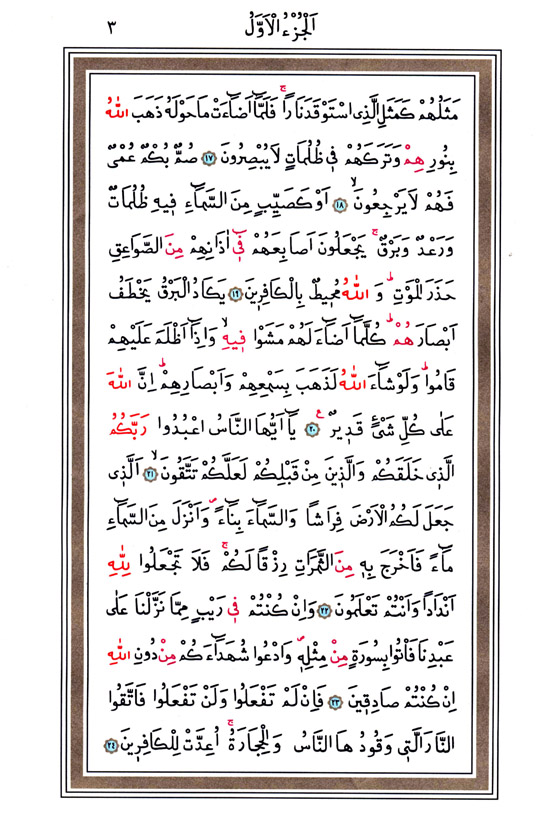 اَلْجُزْءُ الْاَوَّلُ ٣
مَثَلُهُمْ كَمَثَلِ الَّذِى اسْتَوْقَدَ نَارًاۚ فَلَمَّٓا اَضَٓاءَتْ مَا حَوْلَهُ ذَهَبَ اللّٰهُ
بِنُورِهِمْ وَتَرَكَهُمْ فٖى ظُلُمَاتٍ لَا يُبْصِرُونَ ﴿١٧﴾ صُمٌّ بُكْمٌ عُمْىٌ
فَهُمْ لَا يَرْجِعُونَۙ ﴿١٨﴾ اَوْ كَصَيِّبٍ مِنَ السَّمَٓاءِ فٖيهِ ظُلُمَاتٌ
وَرَعْدٌ وَبَرْقٌۚ يَجْعَلُونَ اَصَابِعَهُمْ فٖٓى اٰذَانِهِمْ مِنَ الصَّوَاعِقِ
حَذَرَ الْمَوْتِؕ وَاللّٰهُ مُحٖيطٌ بِالْكَافِرٖينَ ﴿١٩﴾ يَكَادُ الْبَرْقُ يَخْطَفُ
اَبْصَارَهُمْؕ كُلَّمَٓا اَضَٓاءَ لَهُمْ مَشَوْا فٖيهِۙ وَاِذَٓا اَظْلَمَ عَلَيْهِمْ
قَامُواؕ وَلَوْ شَٓاءَ اللّٰهُ لَذَهَبَ بِسَمْعِهِمْ وَاَبْصَارِهِمْؕ اِنَّ اللّٰهَ
عَلٰى كُلِّ شَىْءٍ قَدٖيرٌ ﴿٢٠﴾ يَٓا اَيُّهَا النَّاسُ اعْبُدُوا رَبَّكُمُ
الَّذٖى خَلَقَكُمْ وَالَّذٖينَ مِنْ قَبْلِكُمْ لَعَلَّكُمْ تَتَّقُونَۙ ﴿٢١﴾ اَلَّذٖى
جَعَلَ لَكُمُ الْاَرْضَ فِرَاشًا وَالسَّمَٓاءَ بِنَٓاءً وَاَنْزَلَ مِنَ السَّمَٓاءِ
مَٓاءً فَاَخْرَجَ بِهٖ مِنَ الثَّمَرَاتِ رِزْقًا لَكُمْۚ فَلَا تَجْعَلُوا لِلّٰهِ
اَنْدَادًا وَاَنْتُمْ تَعْلَمُونَ ﴿٢٢﴾ وَاِنْ كُنْتُمْ فٖى رَيْبٍ مِمَّا نَزَّلْنَا عَلٰى
عَبْدِنَا فَاْتُوا بِسُورَةٍ مِنْ مِثْلِهٖ وَادْعُوا شُهَدَٓاءَكُمْ مِنْ دُونِ اللّٰهِ
اِنْ كُنْتُمْ صَادِقٖينَ ﴿٢٣﴾ فَاِنْ لَمْ تَفْعَلُوا وَلَنْ تَفْعَلُوا فَاتَّقُوا
النَّارَ الَّتٖى وَقُودُهَا النَّاسُ وَالْحِجَارَةُۚ اُعِدَّتْ لِلْكَافِرٖينَ ﴿٢٤﴾